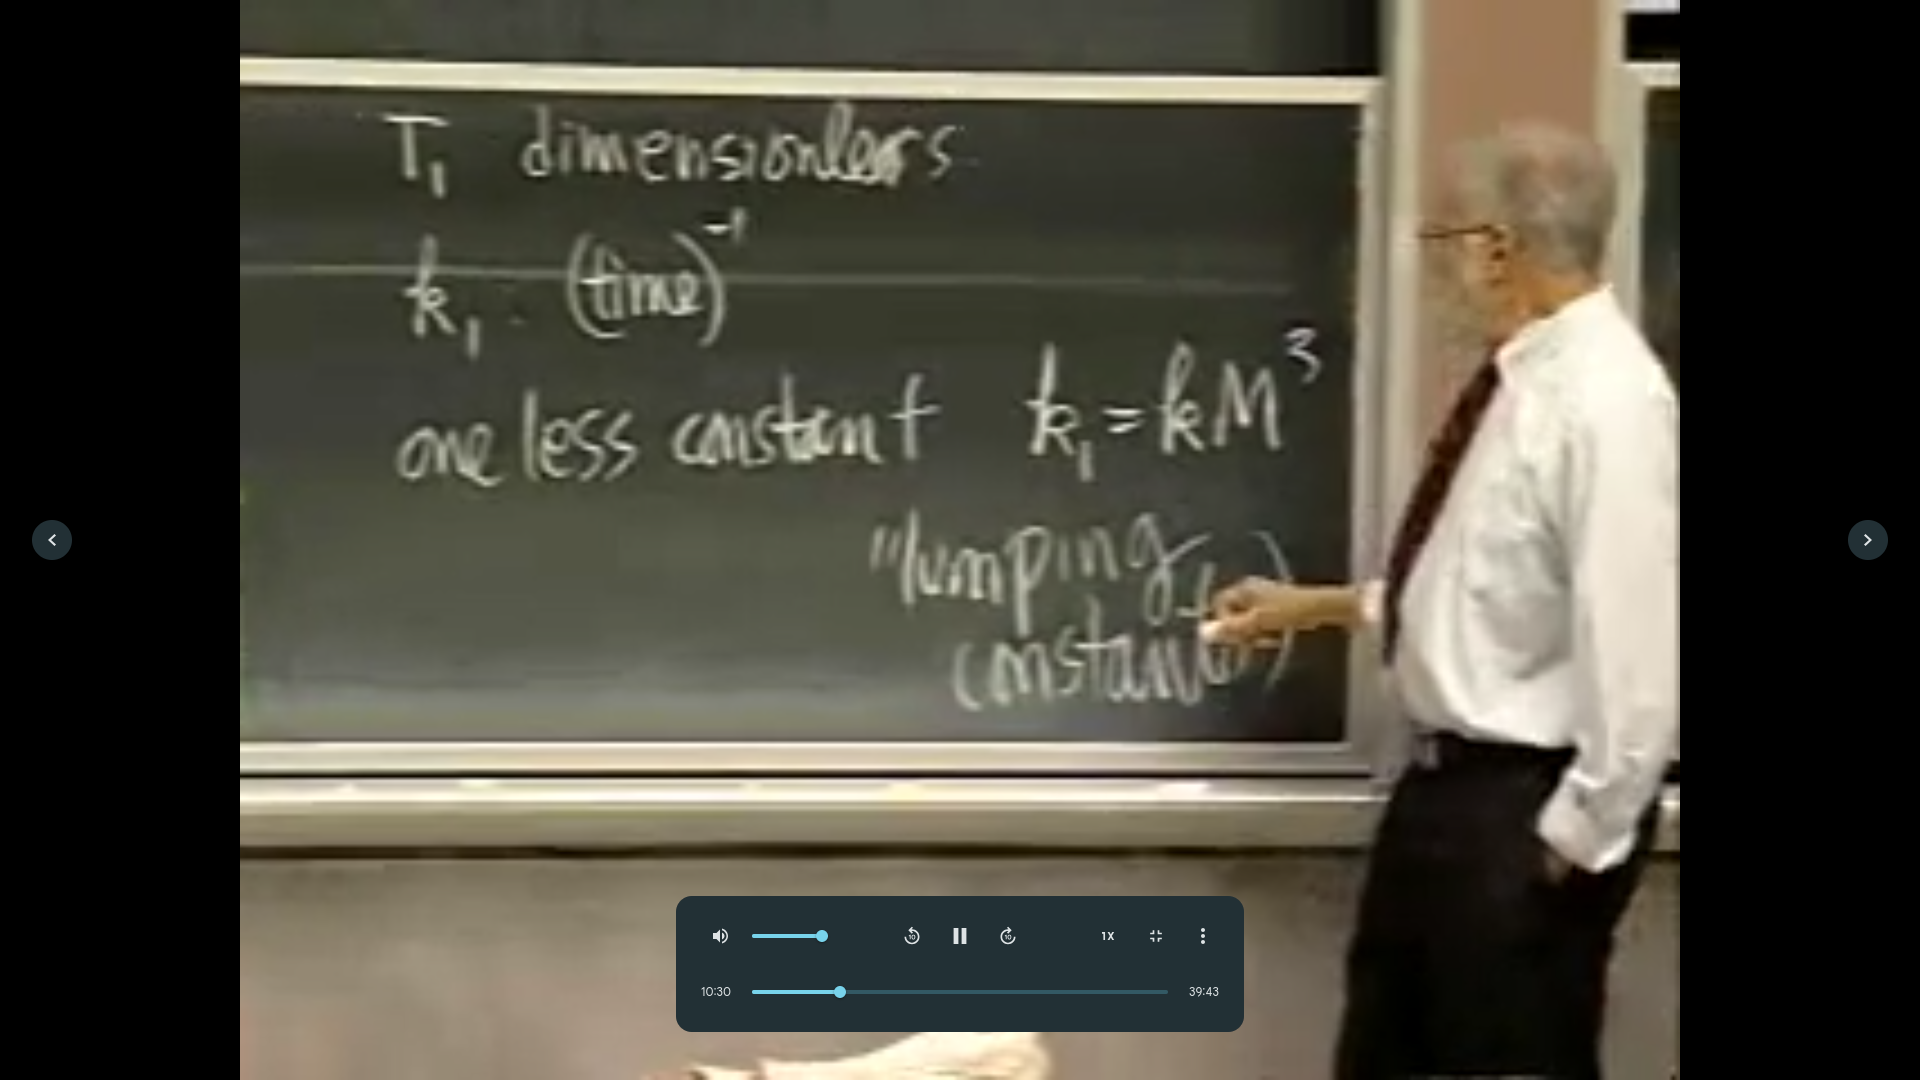 T₁ dimensionless
k₁ (time)⁻¹
one less constant k₁ = kM³
"lumping
constants"
1X
10:30
39:43